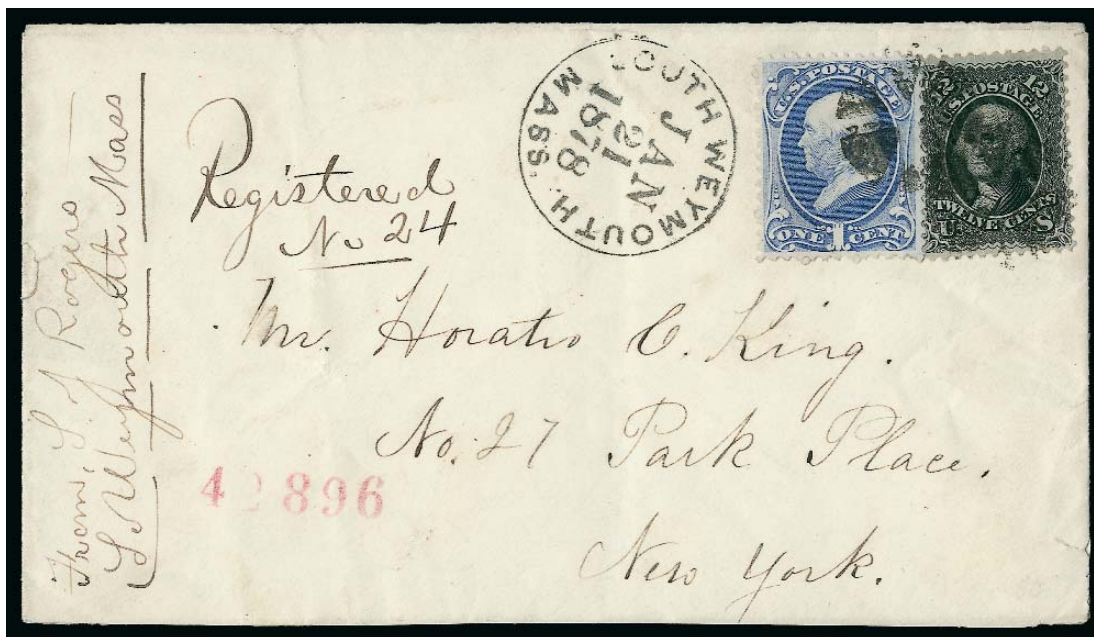 From S. J. Rogers
So Weymouth Mass
Registered
No 24
SOUTH WEYMOUTH
JAN
21
1878
MASS.
U.S. POSTAGE
ONE 1 CENT
12 12
U.S. POSTAGE
TWELVE CENTS
U S
Mr. Horatio C. King.
No. 27 Park Place.
New York.
896